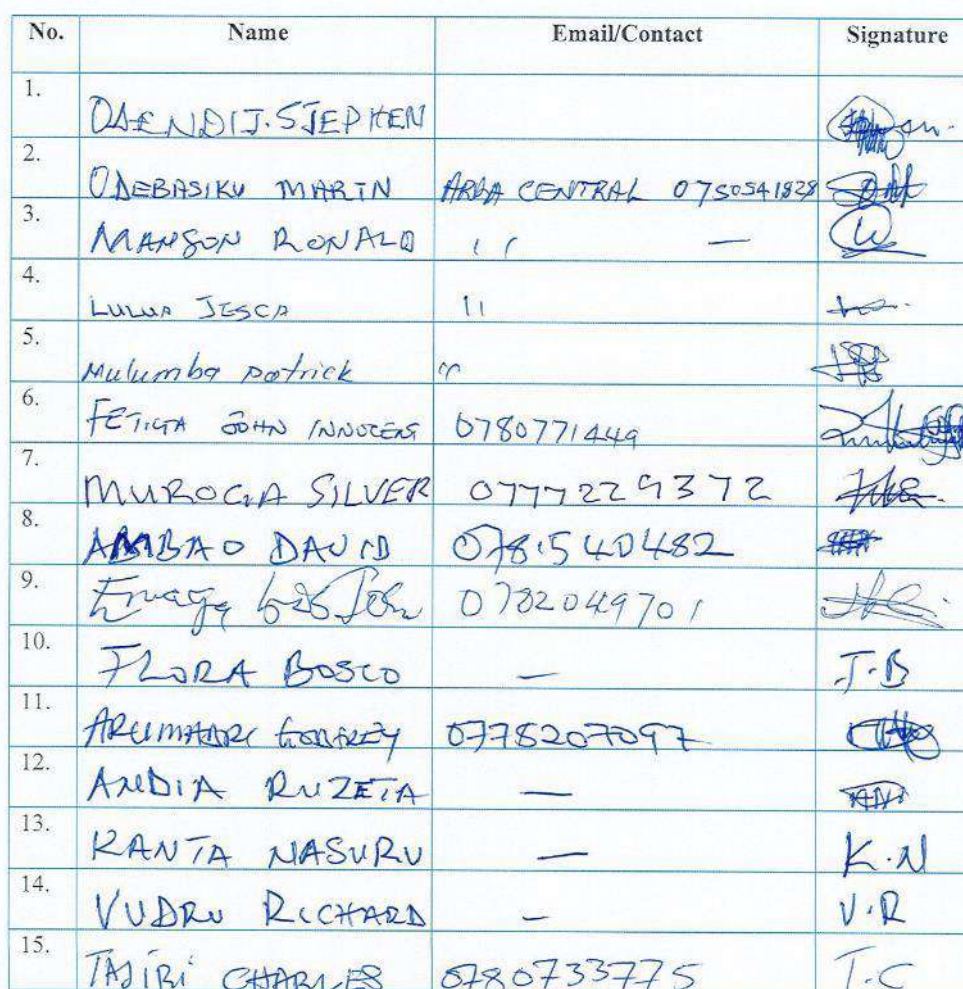 No. Name Email/Contact Signature
1. STEPHEN
2. ODEBASIKU MARTIN ARUA CENTRAL 0750541828
3. MANSON RONALD ,, —
4. LULUA JESCA 11
5. Mulumba Patrick ''
6. FETICTA JOHN INNOCENT 0780771449
7. MUROGA SILVER 07772229372
8. AMBAO DAVID 0781540482
9. John 0782049701
10. FLORA BOSCO — J.B
11. GODFREY 0778207097
12. ANDIA RUZETA —
13. KANTA NASURU — K.N
14. VUDRU RICHARD — V.R
15. TAJIRI CHARLES 0780733775 T.C